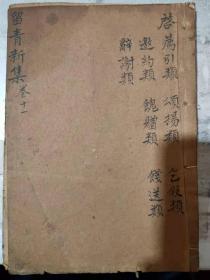 啓薦引類 頌揚類 乞假類
邀約類 餽贈類 餞送類
辭謝類
留青新集 卷十一